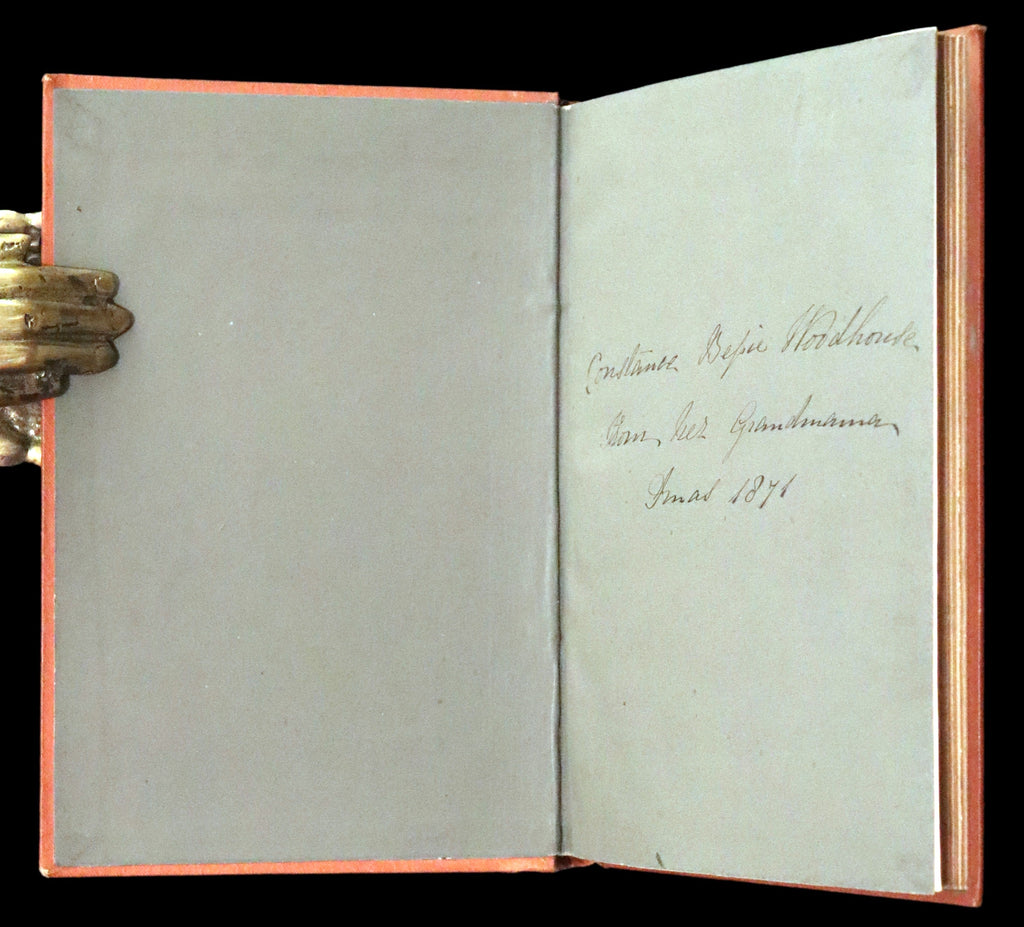 Constance Bessie Woodhouse
from her Grandmama
Xmas 1871